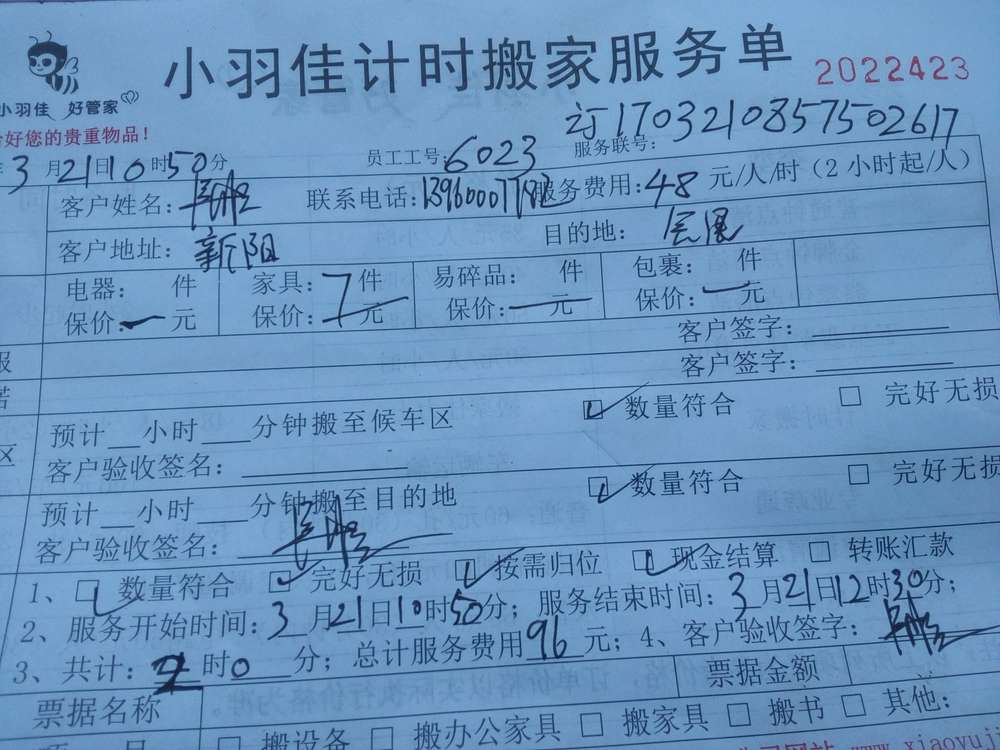 小羽佳计时搬家服务单
2022423
小羽佳 好管家
好您的贵重物品!
订170321085757502617
3月21日10时50分 员工工号:6023 服务联号:
客户姓名: 联系电话:13960007782 服务费用:48元/人/时(2小时起/人)
客户地址:新阳 目的地:会展
电器: 件 家具:7件 易碎品: 件 包裹: 件
保价:一元 保价:元 保价:一元 保价:一元
客户签字:
客户签字:
预计__小时___分钟搬至候车区 ☑数量符合 □完好无损
客户验收签名:
预计__小时___分钟搬至目的地 ☑数量符合 □完好无损
客户验收签名:
1、☑数量符合 ☑完好无损 ☑按需归位 ☑现金结算 □转账汇款
2、服务开始时间:3月21日10时50分;服务结束时间:3月21日12时30分;
3、共计:2时0分;总计服务费用96元;4、客户验收签字:
票据名称 票据金额
□搬设备 □搬办公家具 □搬家具 □搬书 □其他:
www.xiaoyuji